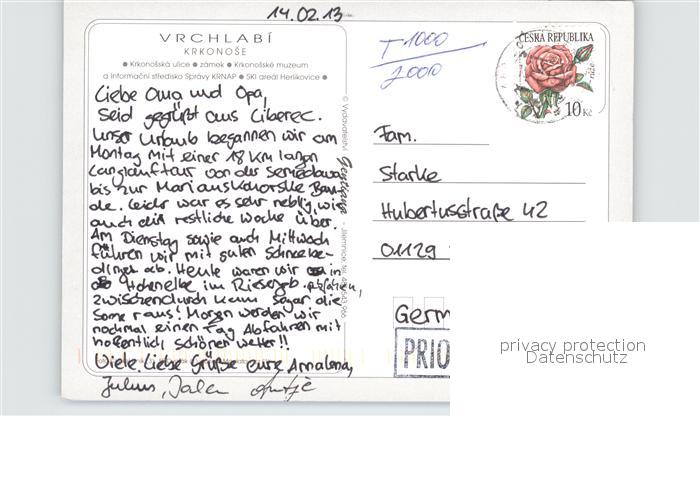 14.02.13
VRCHLABÍ
KRKONOŠE
• Krkonošská ulice • zámek • Krkonošské muzeum
a Informační středisko Správy KRNAP • SKI areál Herlíkovice •
Liebe Oma und Opa,
Seid gegrüßt aus Liberec.
Unser Urlaub begannen wir am
Montag mit einer 18 Km langen
Langlauftour von der
bis zur
de. Leider war es sehr neblig, wie
auch die restliche Woche über.
Am Dienstag sowie auch Mittwoch
führen wir mit guten Schneebe-
dingen ab. Heute waren wir in
Hohenelbe im Riesegeb.
zwischendurch kam sogar die
Sonne raus! Morgen werden wir
nochmal einen Tag Abfahren mit
hoffentlich schönem Wetter!!
Viele Liebe Grüße eure Annalena,
Julius, Antje
© Vydavatelství
Gentiana - Jilemnice, tel.
T 1000
2000
ČESKÁ REPUBLIKA
růže
10 Kč
Fam.
Starke
Hubertusstraße 42
01129
Germ
PRIO
privacy protection
Datenschutz